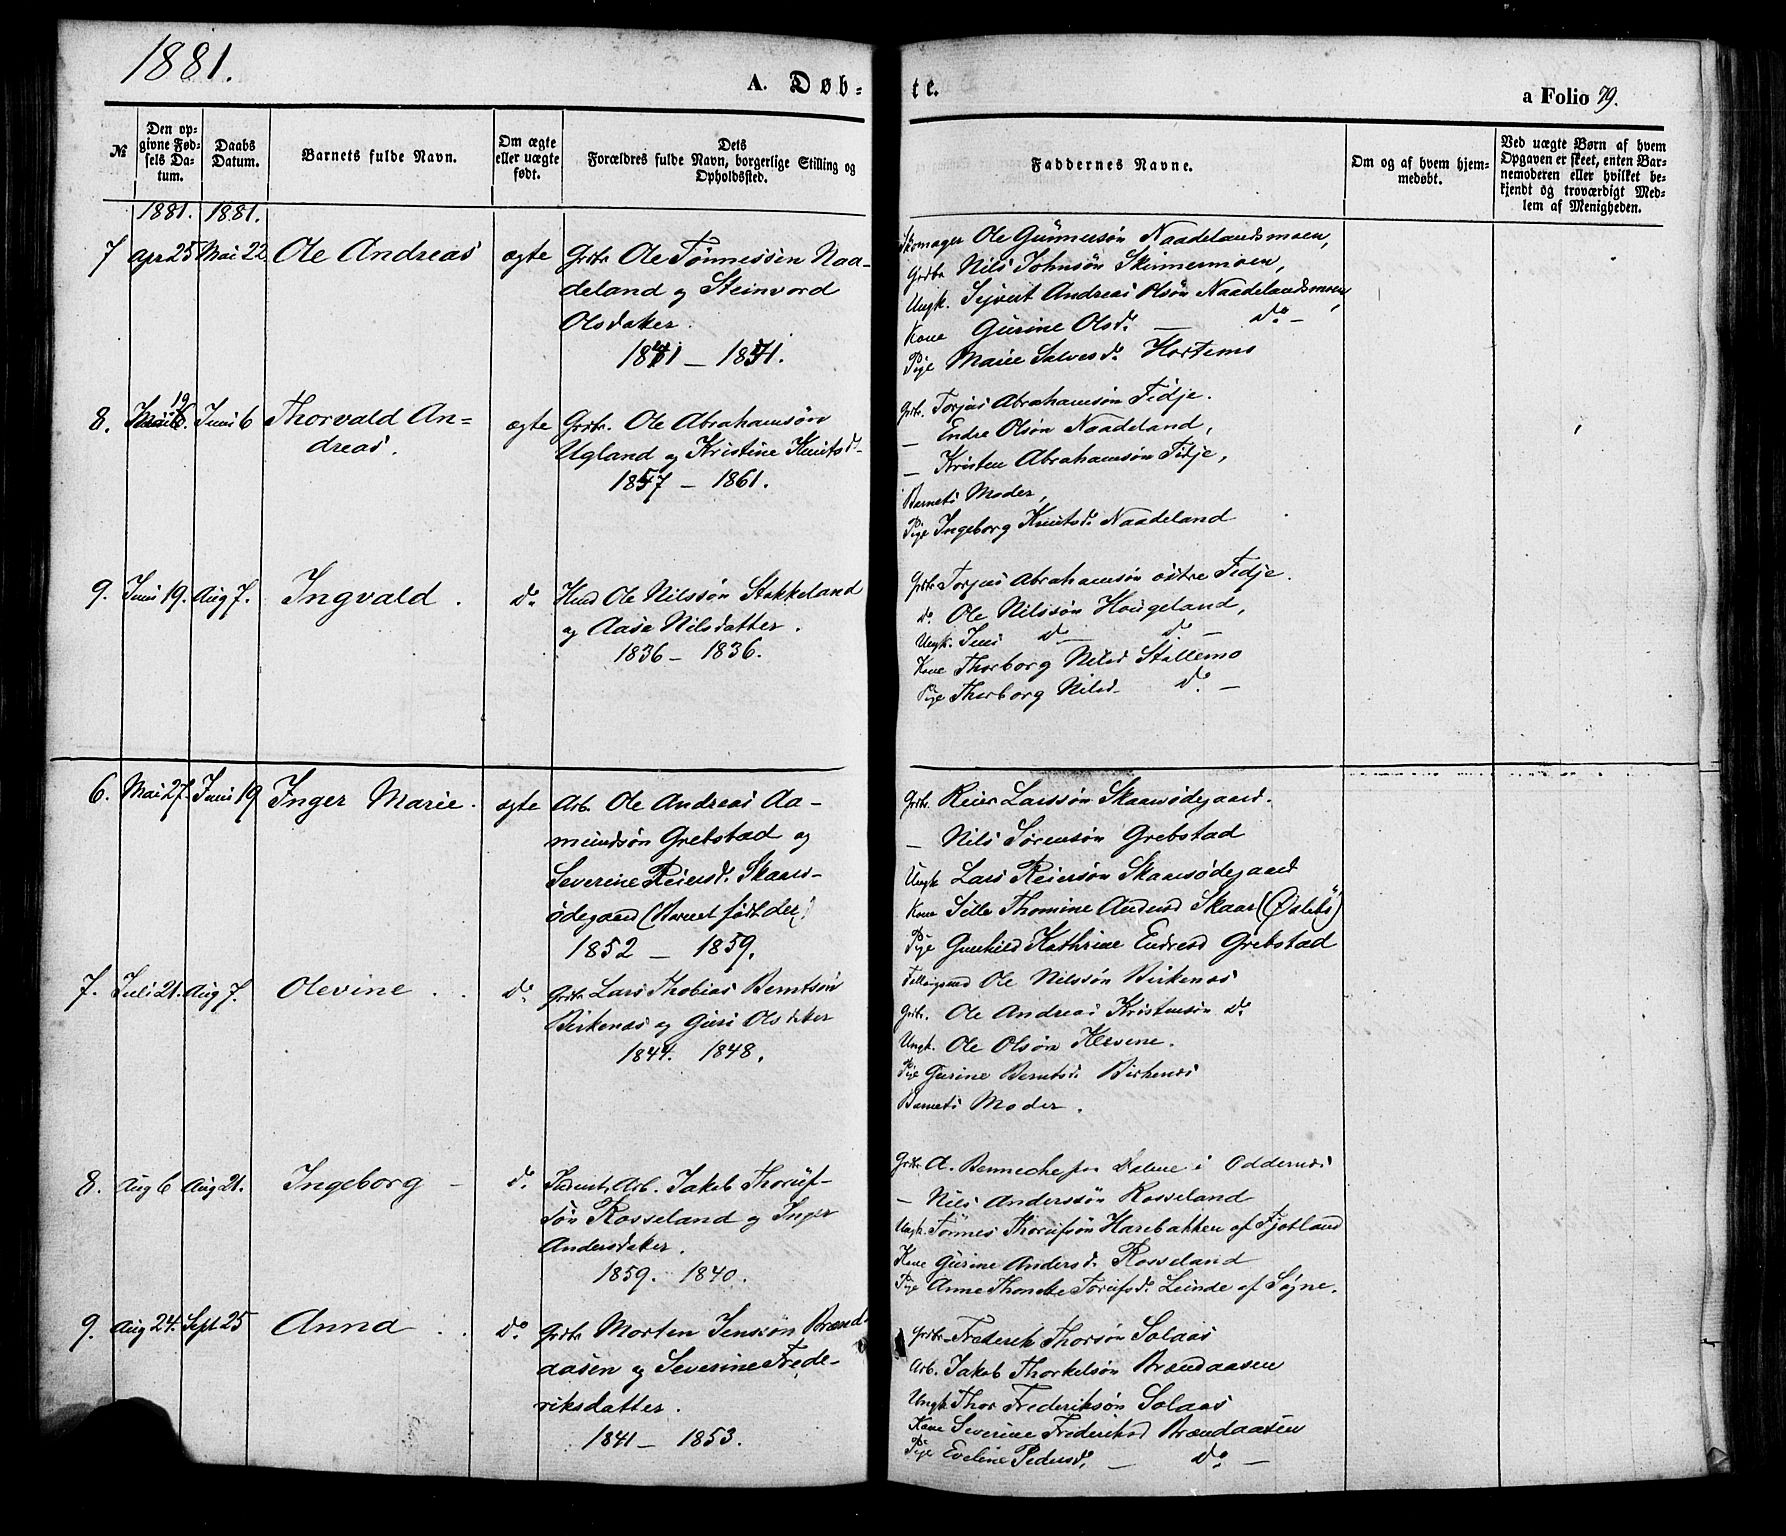 1881.
A. Døb-
te.
a Folio 79.
№
Den op-
givne Fød-
sels Da-
tum.
Daabs
Datum.
Barnets fulde Navn.
Om ægte
eller uægte
født.
Dets
Forældres fulde Navn, borgerlige Stilling og
Opholdssted.
Faddernes Navne.
Om og af hvem hjem-
medøbt.
Ved uægte Børn af hvem
Opgaven er skeet, enten Bar-
nemoderen eller hvilket be-
kjendt og troværdigt Med-
lem af Menigheden.
1881. 1881.
7 Apr 25 Mai 22 Ole Andreas ægte Grbr. Ole Tønnessøn Naa-
deland og Steinvord
Olsdatter.
1841 - 1851.
Skomager Ole Gunnersøn Naadelandsmoen,
Grbr. Nils Johnsøn Skinnermoen,
Ungk. Sijvert Andreas Olsøn Naadelandsmoen,
Kone Gurine Olsd. — Do —
Pige Marie Salvesd. Hortemo
8. 19 Juni 6 Thorvald An=
dreas.
ægte Grbr. Ole Abrahamsøn
Ugland og Kristine Knutsd.
1857 - 1861.
Grbr. Torjus Abrahamsøn Fidje.
— Endre Olsøn Naadeland,
— Kristen Abrahamsøn Fidje,
Barnets Moder,
Pige Ingeborg Knutsd. Naadeland
9. Juni 19. Aug 7. Ingvald. do. Husd Ole Nilssøn Stokkeland
og Aase Nilsdatter.
1836 - 1836.
Grbr. Torjus Abrahamsøn østre Fidje.
do. Ole Nilssøn Hougeland,
Ungk. Jens do — do —
Kone Thorborg Nilsd Stallemo
Pige Thorborg Nilsd. do. —
6. Mai 27. Juni 19 Inger Marie. ægte Arb. Ole Andreas Aa-
mundsøn Grebstad og
Severine Reiersd. Skaars-
ødegaard (Barnet født der)
1852 - 1859.
Grbr. Reier Larssøn Skaarsødegaard.
— Nils Sørensøn Grebstad
Ungk Lars Reiersøn Skaarsødegaard
Kone Sille Thomine Andersd Skaar (Øslebø)
Pige Gunhild Kathrine Endresd Grebstad
7. Juli 21. Aug 7. Olevine . . do. Grbr Lars Thobias Berntsøn
Birkenes og Guri Olsdatter
1844. 1848.
Ole Nilssøn Birkenes
Grbr. Ole Andreas Kristensøn do
Ungk. Ole Olsøn
Pige Gurine Berntsd. Birkenes
Barnets Moder.
8. Aug 6 Aug 21. Ingeborg — do. Arb. Jakob Thoruf-
søn Rosseland og Inger
Andersdatter.
1859. 1840.
Grbr A. Benneche paa Dalene i Oddernes
— Nils Anderssøn Rosseland
Ungk. Tønnes Thorufsøn Harebakken af Fjotland
Kone Gurine Andersd. Rosseland
Pige Anne Thonette Torufsd. Lunde af Søgne.
9. Aug 24. Sept 25 Anna . . do. Grbr Morten Jenssøn Brænd-
aasen og Severine Frede-
riksdatter.
1841 - 1853.
Grbr. Frederik Thorsøn Solaas
Arb. Jakob Thorkelsøn Brændaasen
Ungk Thor Frederiksøn Solaas
Kone Severine Frederiksd Brændaasen
Pige Eveline Pedersd. — do. —